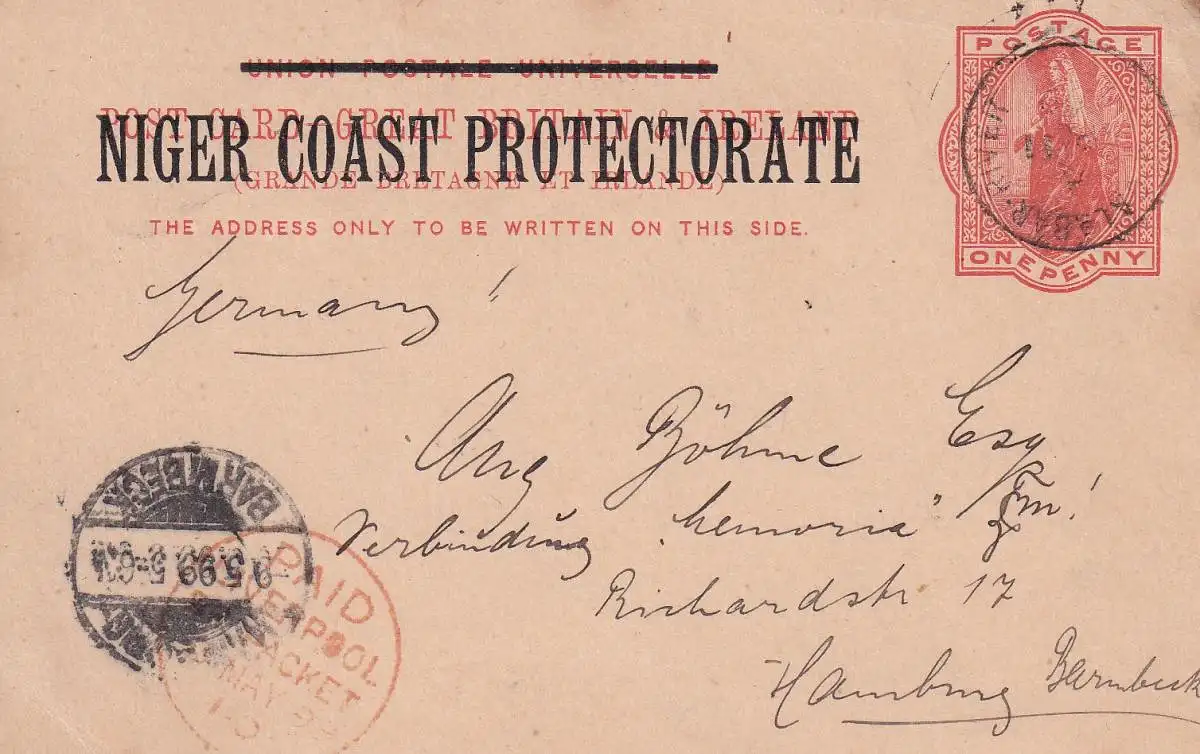 UNION POSTALE UNIVERSELLE
POST CARD–GREAT BRITAIN & IRELAND
NIGER COAST PROTECTORATE
(GRANDE BRETAGNE ET IRLANDE)
THE ADDRESS ONLY TO BE WRITTEN ON THIS SIDE.
POSTAGE
ONE PENNY
Germany!
Aug Böhme Esq
Verbindung "Memoria"
Richardstr 17
Hamburg Barmbeck
BARMBECK
9.5.99. 5-6
PAID
LIVERPOOL
PACKET
MAY